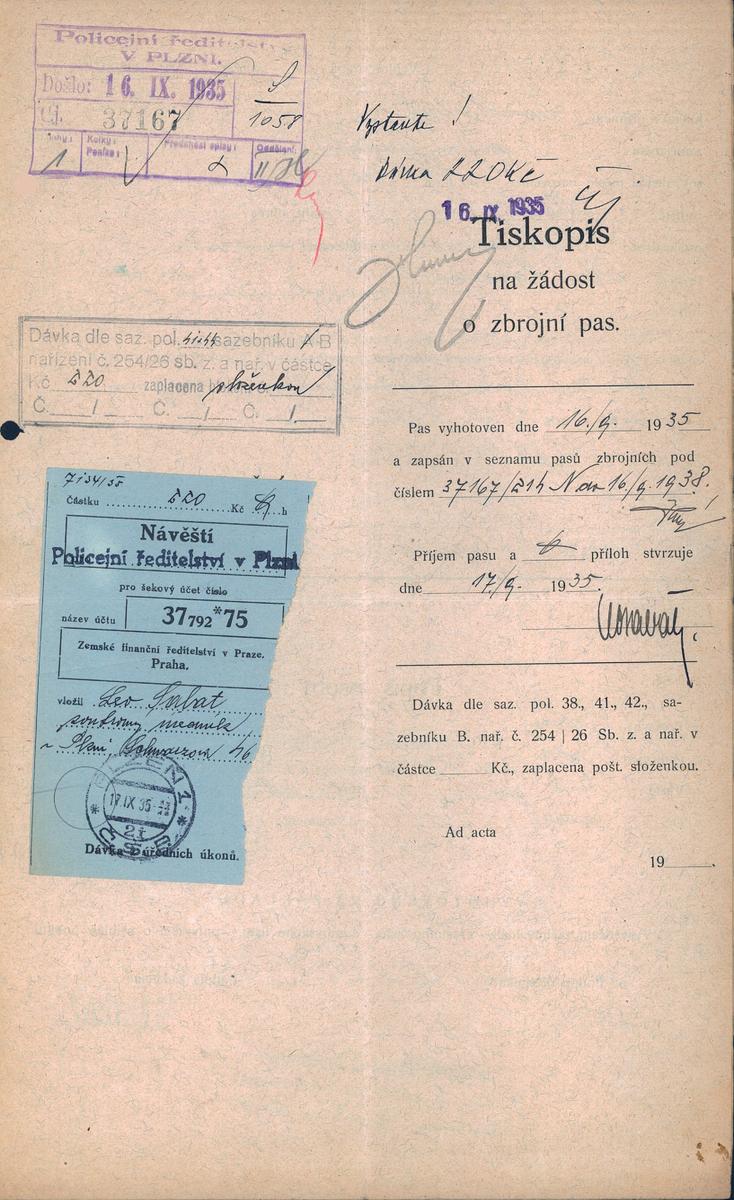 Policejní ředitelství
V PLZNI.
Došlo: 16. IX. 1935
Čj. 37167
1058
Přílohy: Kolky: Předchozí spisy: Oddělení:
Peníze:
1 II
Vystavte!
Dávka 220 Kč
16. IX. 1935
Tiskopis
na žádost
o zbrojní pas.
Dávka dle saz. pol. sazebníku A-B
nařízení č. 254/26 sb. z. a nař. v částce
Kč 220 zaplacena složenkou
Č. / Č. / Č. /
Pas vyhotoven dne 16./9. 1935
a zapsán v seznamu pasů zbrojních pod
číslem 37167/ 16/9. 1938.
Příjem pasu a příloh stvrzuje
dne 17/9. 1935.
Dávka dle saz. pol. 38., 41., 42., sa-
zebníku B. nař. č. 254 | 26 Sb. z. a nař. v
částce Kč., zaplacena pošt. složenkou.
Ad acta
19 .
7134/35
Částku 220 Kč h
Návěští
Policejní ředitelství v Plzni
pro šekový účet číslo
název účtu 37792*75
Zemské finanční ředitelství v Praze.
Praha.
vložil Leo Sabat
v Plzni 46
PLZEŇ 1
17.IX 35
2i
ČSP
Dávka z úředních úkonů.